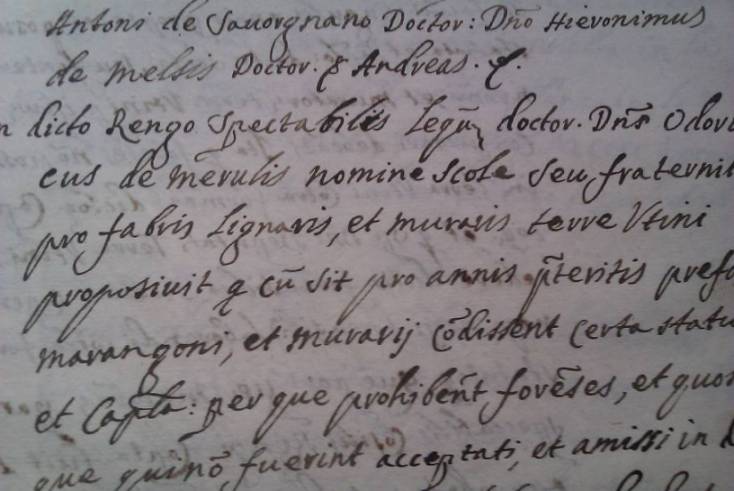 Antoni de Savorgnano Doctor: Dño Hieronimus
de melsis Doctor. & Andreas. &.
n dicto Rengo Spectabilis Legũ doctor. Dnš Odori
cus de mẽrulis nomine scole seu fraternit
pro fabris Lignaris, et muraris terre Vtini
proposiuit q cũ sit pro annis p̃teritis prefa
marangoni, et murarij cõdissent certa statu
et Capl̃a: per que prohibeñt forẽses, et quos
que quinõ fuerint acceptati, et amissi in